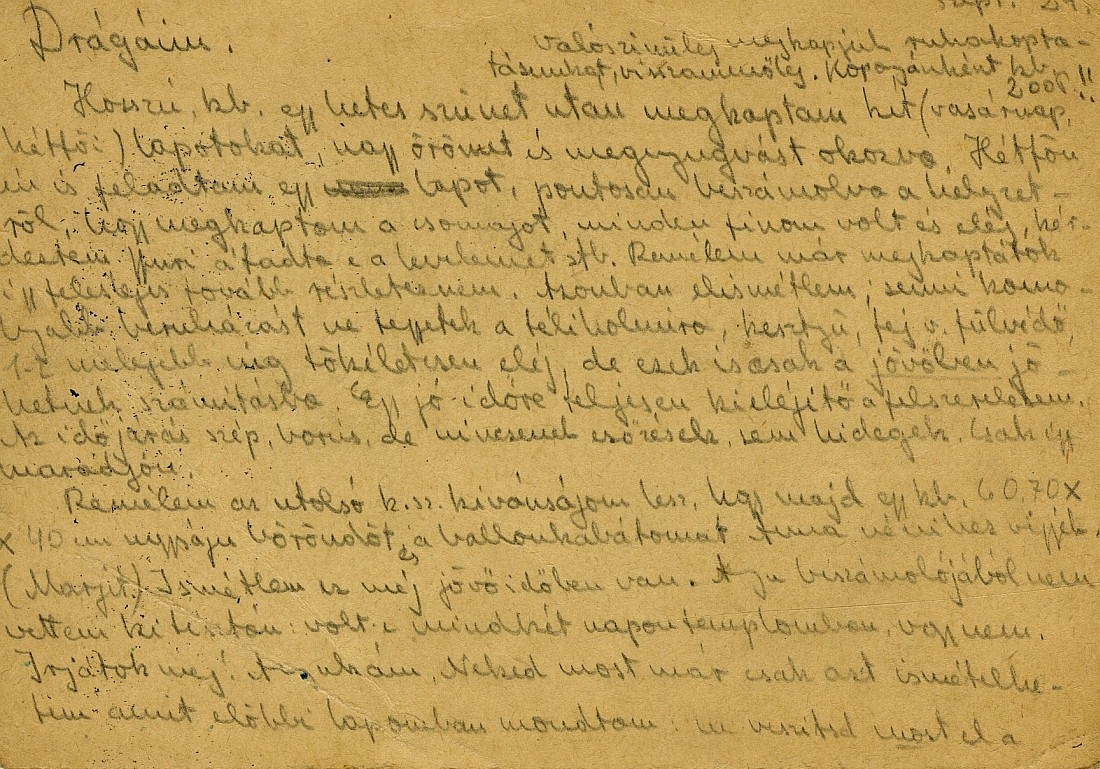 Szept. 29.
Drágáim.
Valószinüleg megkapjuk ruhakopta-
tásunkat, visszamenőleg. Koponyánként kb.
200P.!!
Hosszú, kb. egy hetes szünet után megkaptam két (vasárnap,
hétfői) lapotokat, nagy örömet és megnyugvást okozva. Hétfőn
én is feladtam egy lapot, pontosan beszámolva a helyzet-
ről, hogy megkaptam a csomagot, minden finom volt és elég, kér-
deztem Gyuri átadta e a levelemet stb. Remélem már megkaptátok
így felesleges tovább részleteznem. Azonban elismétlem; semi komo-
lyabb beruházást ne tegyetek a téliholmira, kesztyű, fej v. fülvédő
1-2 melegebb még tökéletesen elég, de ezek is csak a jövőben jö-
hetnek számításba. Egy jó időre teljesen kielégítő a felszerelésem.
Az időjárás szép, borús, de nincsenek esőzések, sem hidegek. Csak így
maradjon.
Remélem az utolsó k.sz. kívánságom lesz, hogy majd egy kb. 60,70x
x 40 cm nypáju bőröndöt és a ballonkabátomat Anna nénihez vigyék.
(Margit) Ismétlem ez még jövőidőben van. A beszámolójából nem
vettem ki tisztán: volt e mindkét napon templomban, vagy nem.
Irjátok meg! Anyukám, Neked most már csak azt ismételhe-
tem amit előbbi lapomban mondtam: ne veszitsd most el a